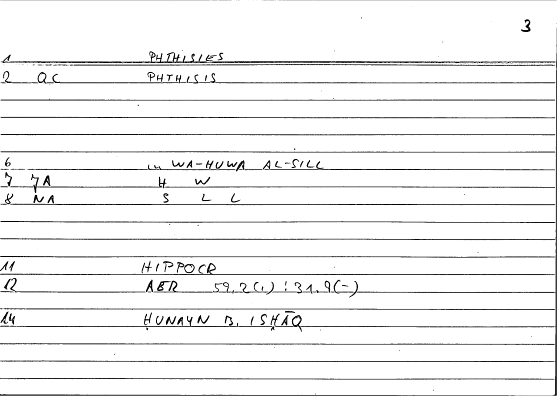 3
1 PHTHISIES
2 QC PHTHISIS
6 in WA-HUWA AL-SILL
7 7A H W
8 NA S L L
11 HIPPOCR
12 AER 59,2(1) : 31.9(-)
14 ḤUNAYN B. ISḤĀQ